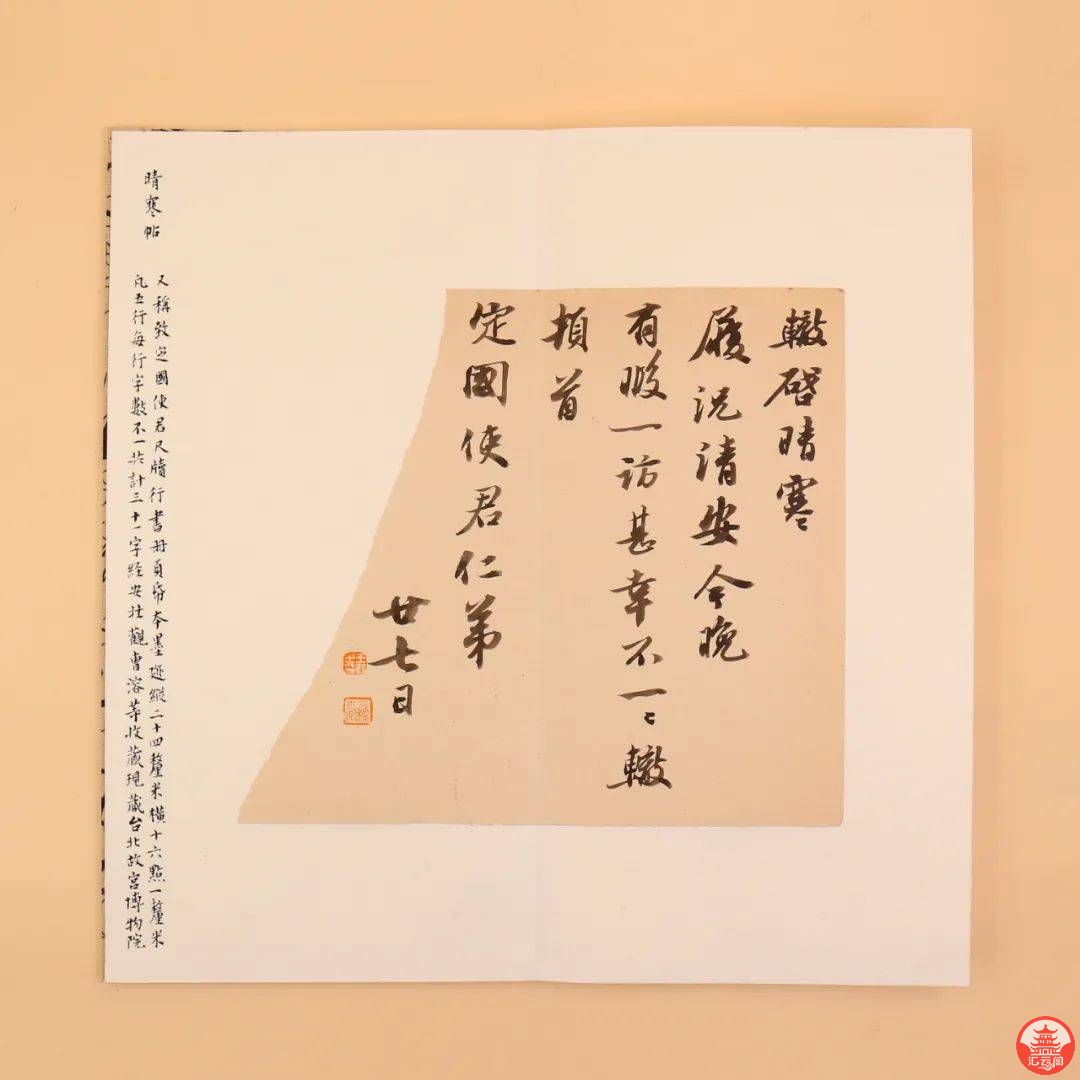 轍啓晴寒
履況清安今晚
有暇一訪甚幸不一〻轍
頓首
定國使君仁弟
廿七日
晴寒帖
又稱致定國使君尺牘行書册頁帋本墨迹縱二十四釐米橫十六點一釐米
凡五行每行字數不一共計三十一字經安壯觀曹溶等收藏現藏台北故宮博物院
汇云阁